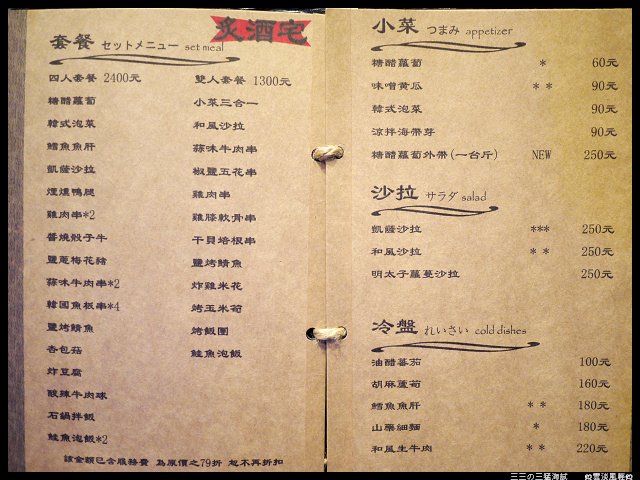 炙酒宅
套餐 セットメニュー set meal
四人套餐 2400元
糖醋蘿蔔
韓式泡菜
鱈魚魚肝
凱薩沙拉
煙燻鴨腿
雞肉串*2
醬燒骰子牛
鹽蔥梅花豬
蒜味牛肉串*2
韓國魚板串*4
鹽烤鯖魚
杏包菇
炸豆腐
酸辣牛肉球
石鍋拌飯
鮭魚泡飯*2
雙人套餐 1300元
小菜三合一
和風沙拉
蒜味牛肉串
椒鹽五花串
雞肉串
雞膝軟骨串
干貝培根串
鹽烤鯖魚
炸雞米花
烤玉米筍
烤飯團
鮭魚泡飯
該金額已含服務費 為原價之79折 恕不再折扣
小菜 つまみ appetizer
糖醋蘿蔔 * 60元
味噌黄瓜 * * 90元
韓式泡菜 90元
涼拌海帶芽 90元
糖醋蘿蔔外帶(一台斤) NEW 250元
沙拉 サラダ salad
凱薩沙拉 *** 250元
和風沙拉 * * 250元
明太子蘿蔓沙拉 250元
冷盤 れいさい cold dishes
油醋蕃茄 100元
胡麻蘆筍 160元
鱈魚魚肝 * * 180元
山藥細麵 * 180元
和風生牛肉 * * 220元
三三の三猛海賊